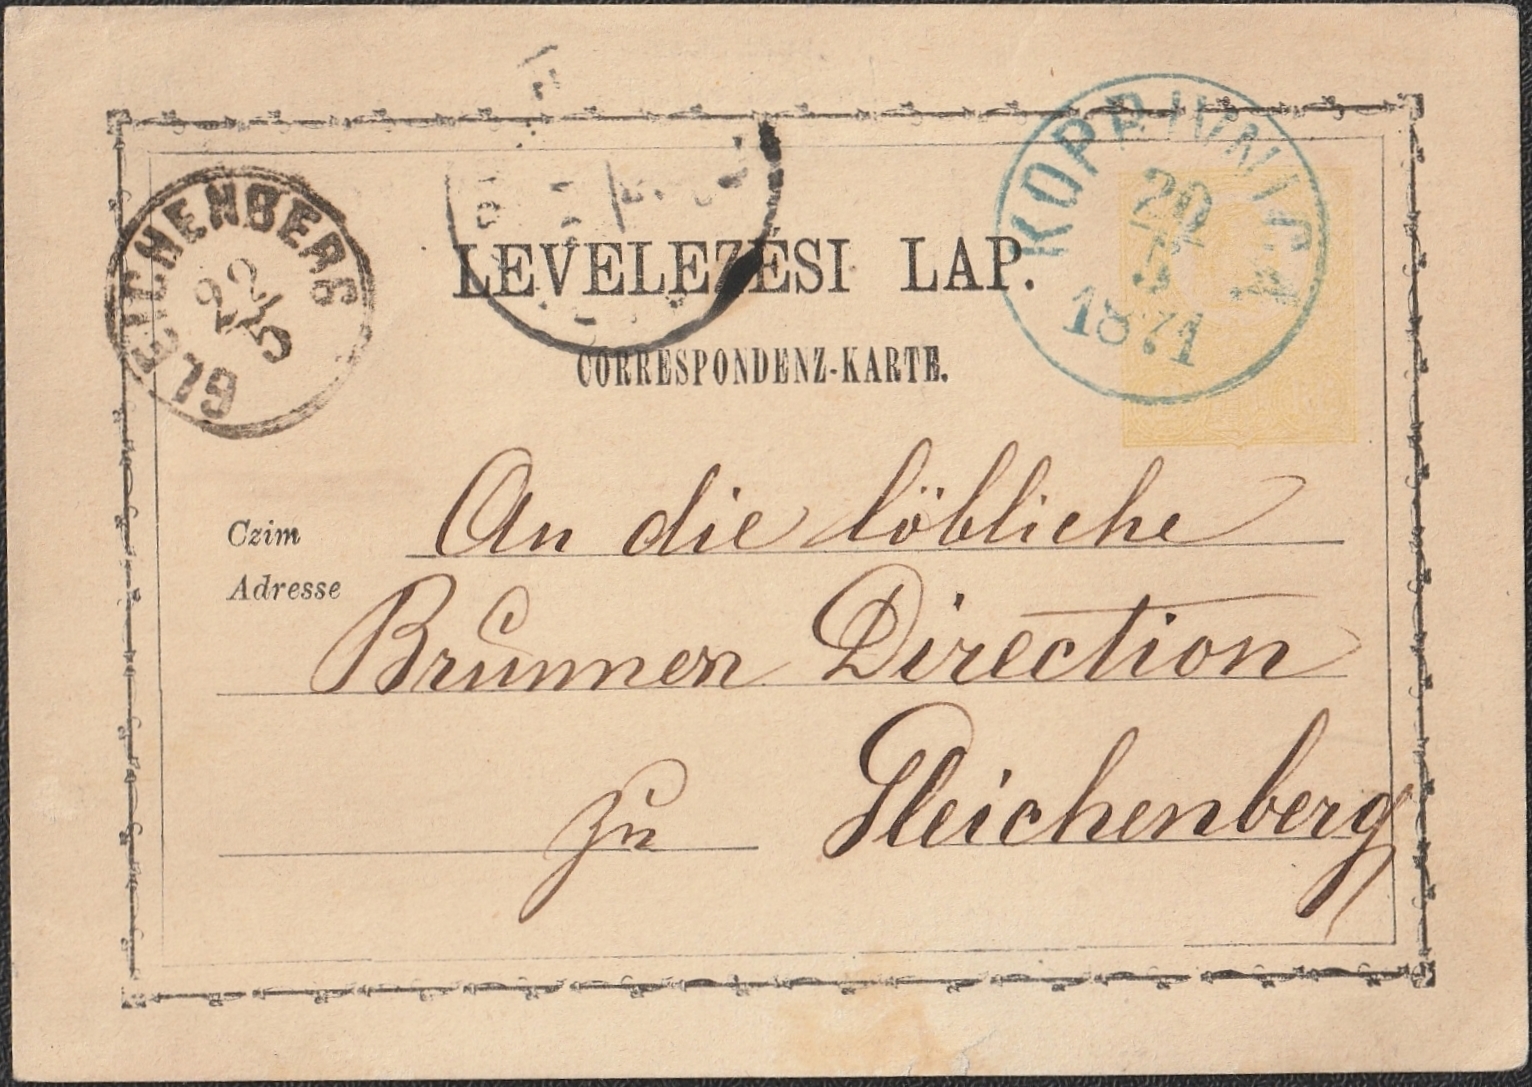 GLEICHENBERG
22/5
KOPRIVNICA
20
5
1871
LEVELEZÉSI LAP.
CORRESPONDENZ-KARTE.
Czim
Adresse
An die löbliche
Brunnen Direction
zu Gleichenberg